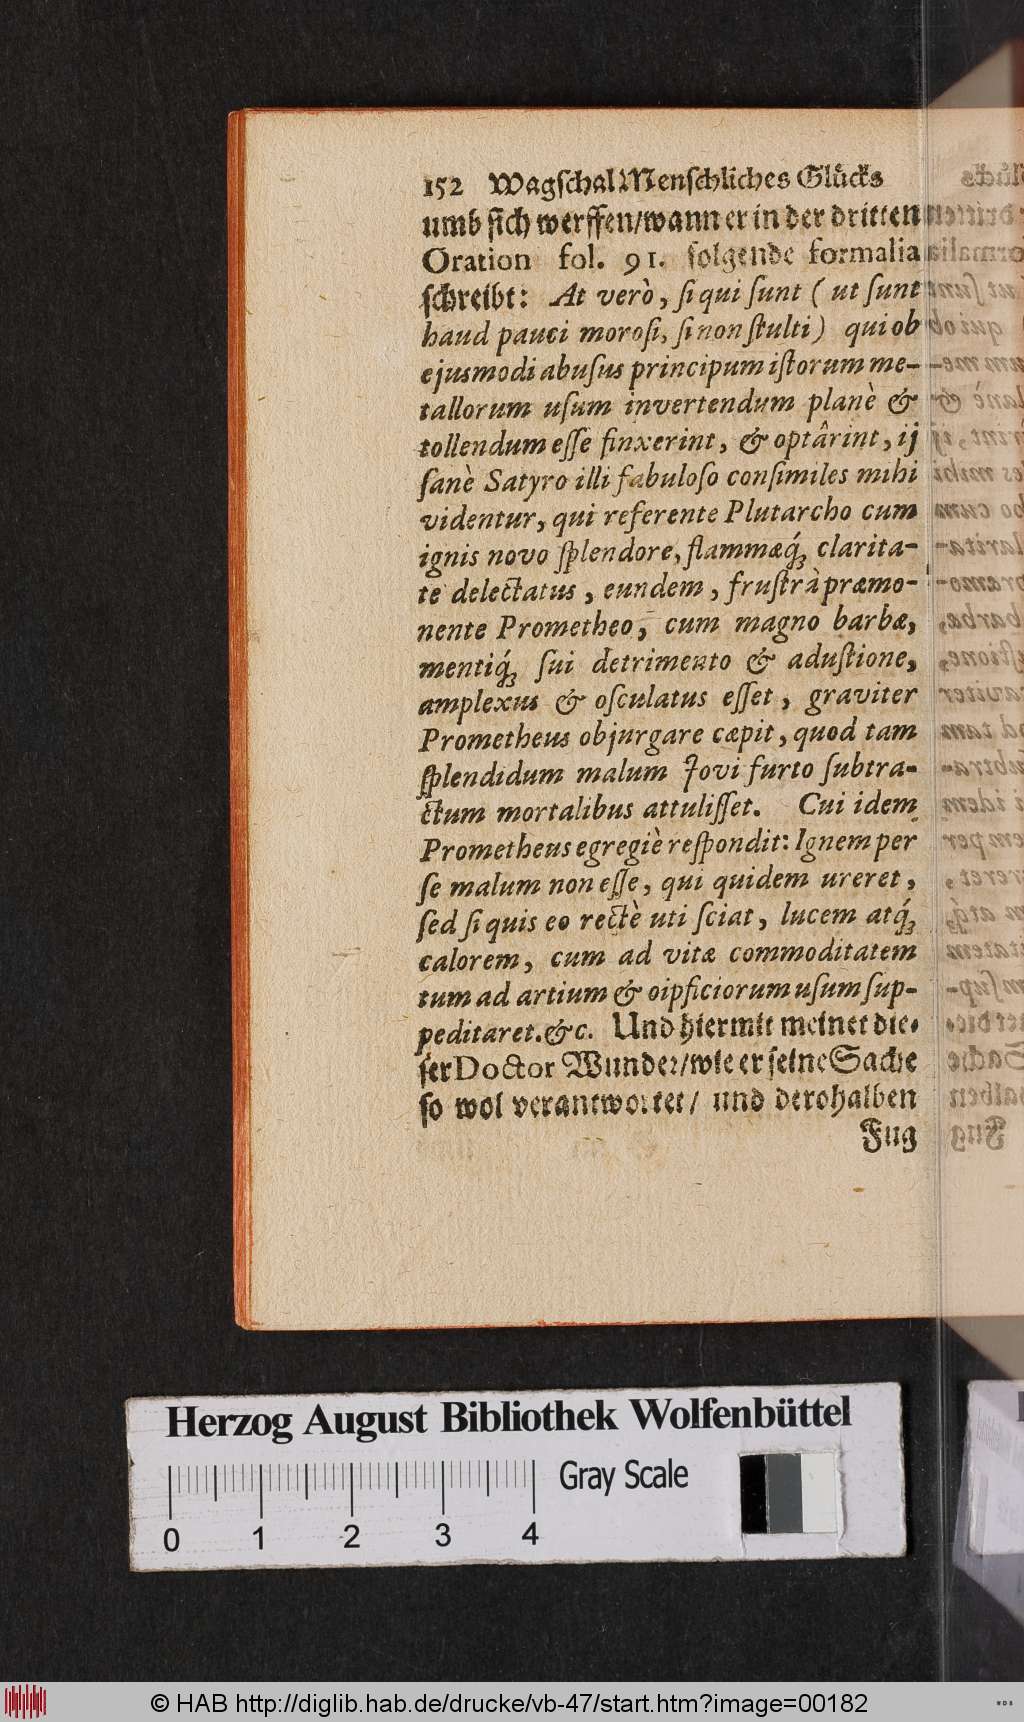 152 Wagschal Menschliches Glücks
umb sich werffen/wann er in der dritten
Oration fol. 91. folgende formalia
schreibt: At verò, si qui sunt ( ut sunt
haud pauci morosi, si non stulti) qui ob
ejusmodi abusus principum istorum me-
tallorum usum invertendum planè &
tollendum esse finxerint, & optârint, ij
sanè Satyro illi fabuloso consimiles mihi
videntur, qui referente Plutarcho cum
ignis novo splendore, flammæq́; clarita-
te delectatus, eundem, frustrà præmo-
nente Prometheo, cum magno barbæ,
mentiq́; sui detrimento & adustione,
amplexus & osculatus esset, graviter
Prometheus objurgare cæpit, quod tam
splendidum malum Jovi furto subtra-
ctum mortalibus attulisset. Cui idem
Prometheus egregiè respondit: Ignem per
se malum non esse, qui quidem ureret,
sed si quis eo rectè uti sciat, lucem atq́;
calorem, cum ad vitæ commoditatem
tum ad artium & oipficiorum usum sup-
peditaret. &c. Und hiermit meinet die-
ser Doctor Wunder/wie er seine Sache
so wol verantwortet/ und derohalben
Fug
Herzog August Bibliothek Wolfenbüttel
Gray Scale
0 1 2 3 4
© HAB http://diglib.hab.de/drucke/vb-47/start.htm?image=00182